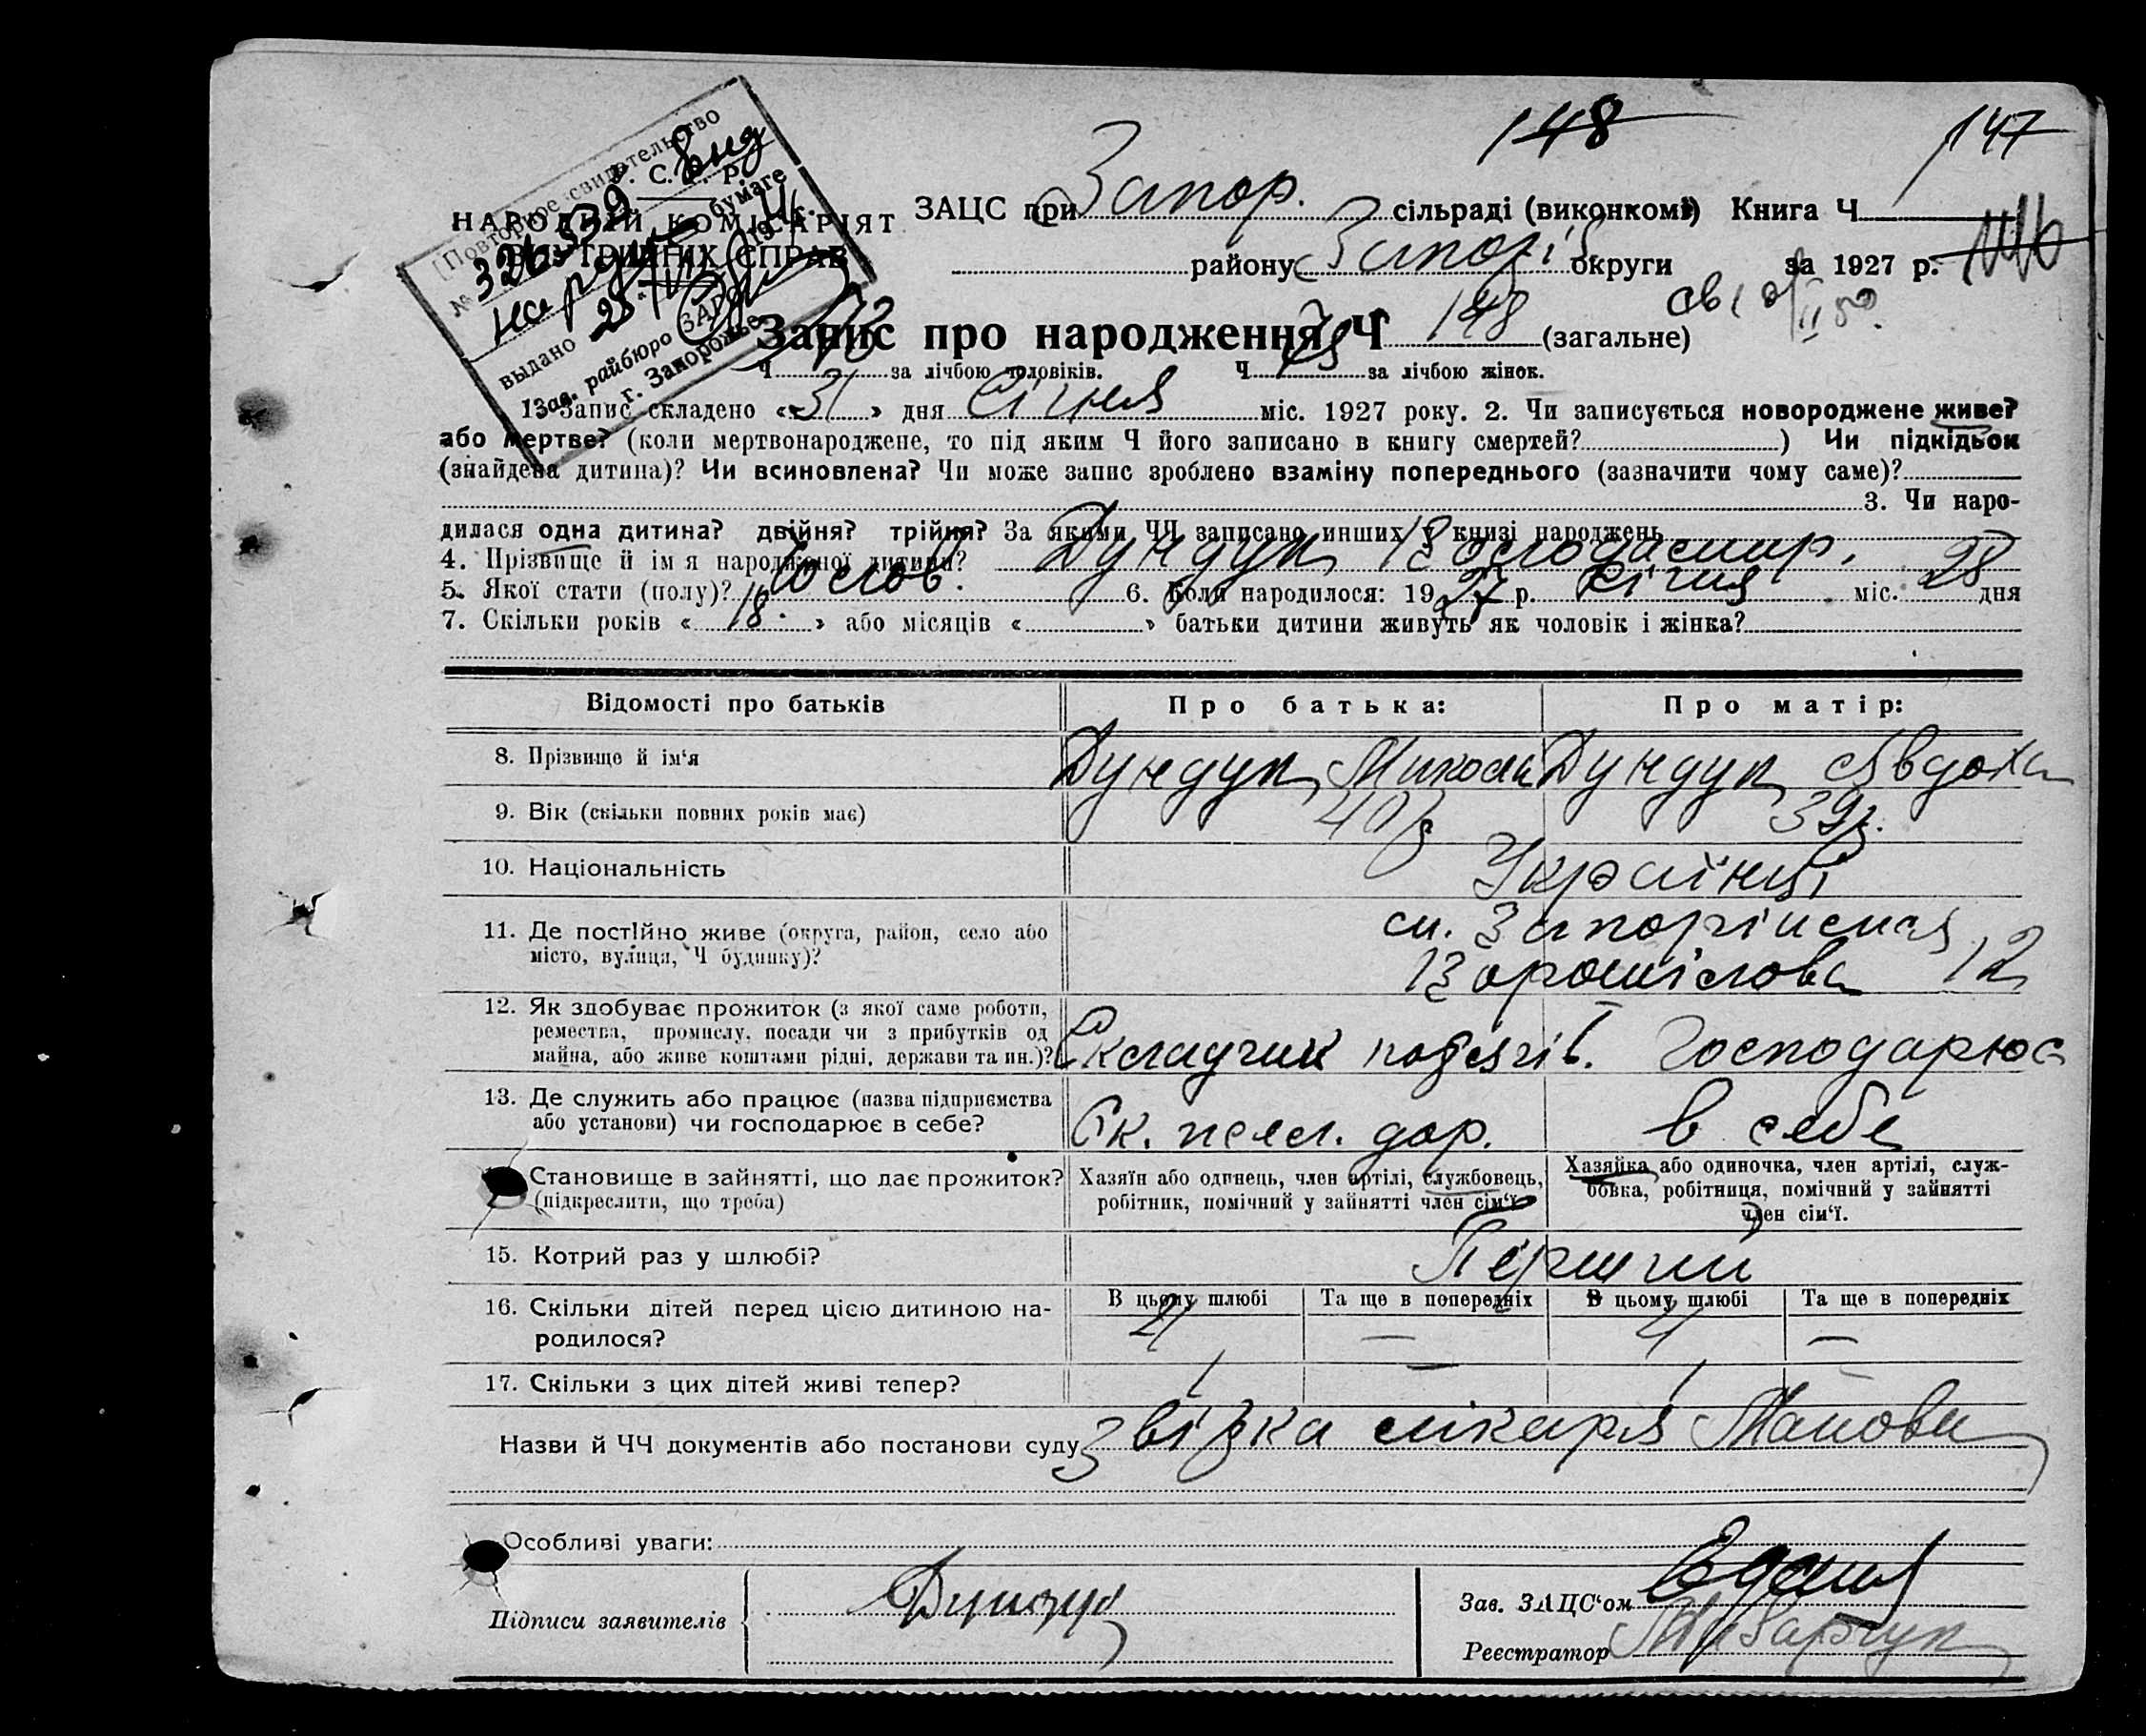 148
147
[Повторное свидетельство
№ 326539
бумаге
выдано 25
Зав. райбюро ЗАГС
г. Запорожье
У. С. Р. Р.
НАРОДНІЙ КОМІСАРІЯТ
ВНУТРІШНІХ СПРАВ
ЗАЦС при Запор. сільраді (виконкомі) Книга Ч.
району Запоріз округи за 1927 р. 146
Запис про народження Ч 148 (загальне)
Ч за лічбою чоловіків. Ч 75 за лічбою жінок.
1. Запис складено «31» дня Січня міс. 1927 року. 2. Чи записується новороджене живе?
або мертве? (коли мертвонароджене, то під яким Ч його записано в книгу смертей?) Чи підкідьок
(знайдена дитина)? Чи всиновлена? Чи може запис зроблено взаміну попереднього (зазначити чому саме)?
3. Чи наро-
дилася одна дитина? двійня? трійня? За якими ЧЧ записано инших у книзі народжень
4. Прізвище й ім я народженої дитини? Дундук Володимир.
5. Якої статі (полу)? Чолов. 6. Коли народилося: 1927 р. Січня міс. 28 дня
7. Скільки років «18.» або місяців « » батьки дитини живуть як чоловік і жінка?
Відомості про батьків Про батька: Про матір:
8. Прізвище й ім‘я Дундук Микола Дундук Явдоха
9. Вік (скільки повних років має) 40 р 39 р.
10. Національність Українці
11. Де постійно живе (округа, район, село або місто, вулиця, Ч будинку)? Запоріжжя
Ворошілова 12
12. Як здобуває прожиток (з якої саме роботи,
ремества, промислу, посади чи з прибутків од
майна, або живе коштами рідні, держави та ин.)? Складчик потягів. Господарює
13. Де служить або працює (назва підприємства
або установи) чи господарює в себе? Ек. дор. в себе
Становище в зайнятті, що дає прожиток? Хазяїн або одинець, член артілі, службовець, Хазяйка або одиночка, член артілі, служ-
(підкреслити, що треба) робітник, помічний у зайнятті член сім‘ї бовка, робітниця, помічний у зайнятті
член сім‘ї.
15. Котрий раз у шлюбі? Перший
16. Скільки дітей перед цією дитиною на- В цьому шлюбі Та ще в попередніх В цьому шлюбі Та ще в попередніх
родилося? 4 — 4 —
17. Скільки з цих дітей живі тепер? 1 — 1 —
Назви й ЧЧ документів або постанови суду Звізка лікаря
Особливі уваги:
Підписи заявителів Дундук
Зав. ЗАЦС‘ом
Реєстратор